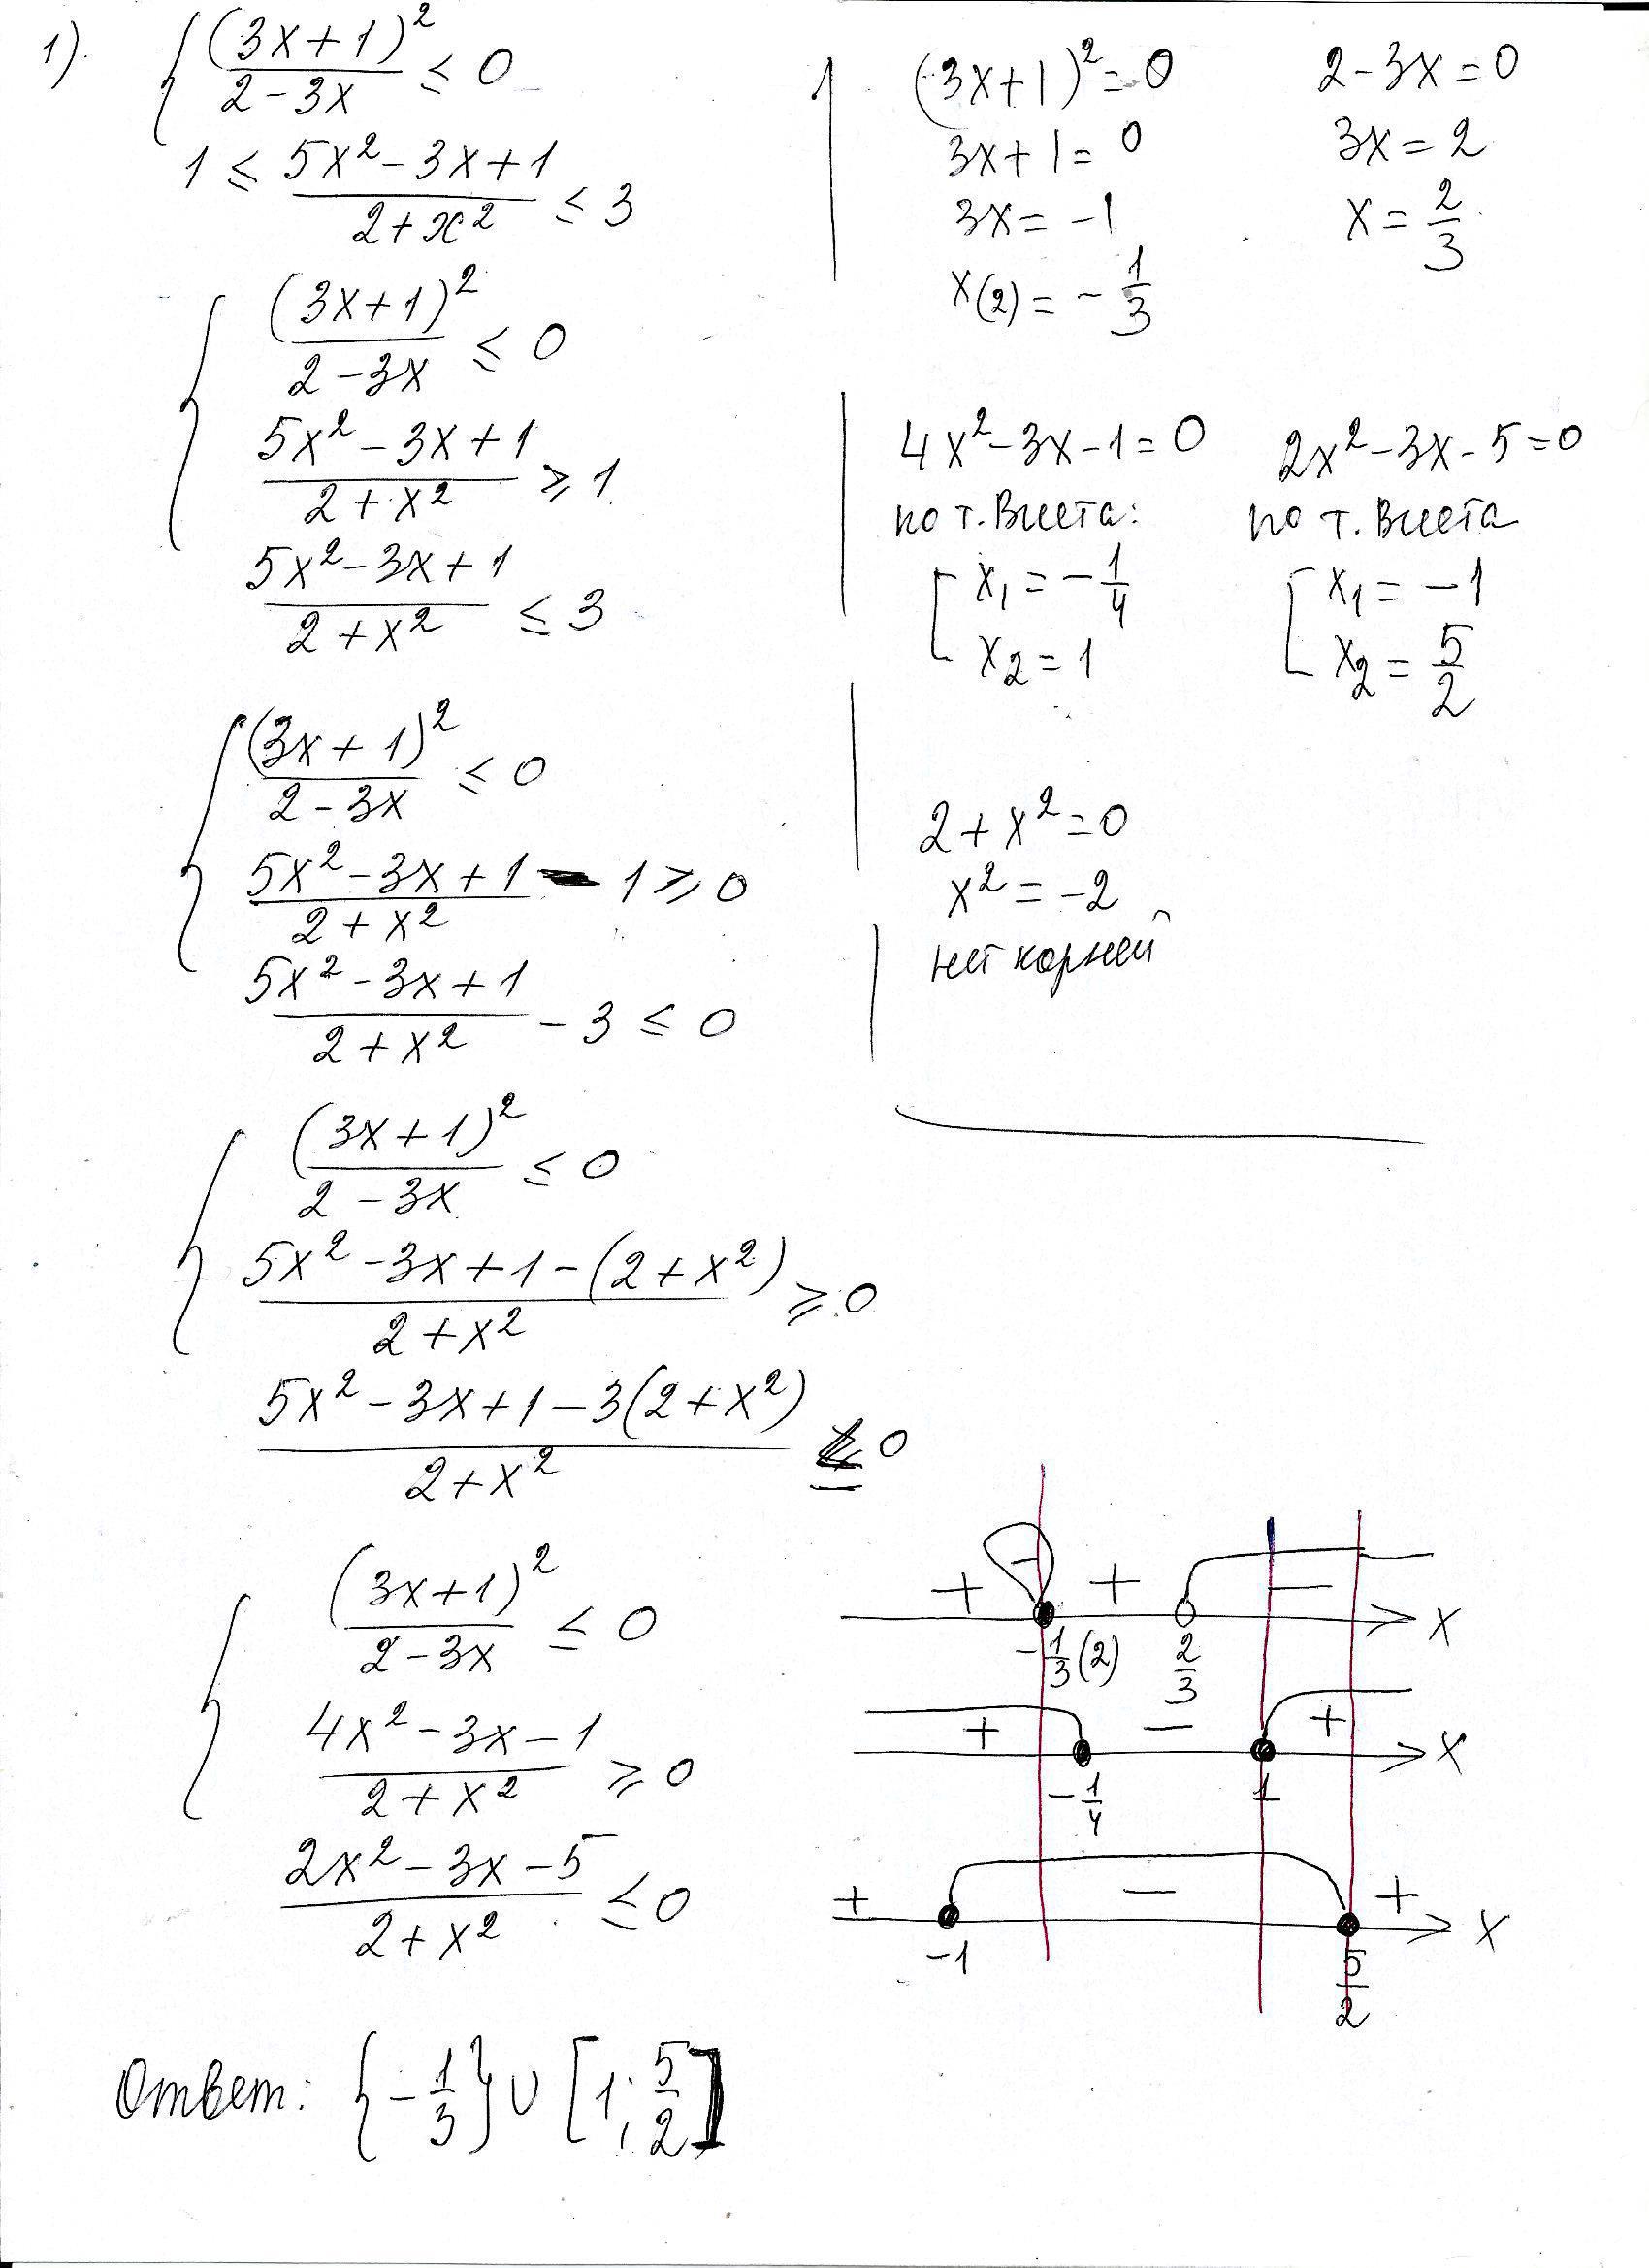 1).
(3x+1)²/(2-3x) ≤ 0
1 ≤ (5x²-3x+1)/(2+x²) ≤ 3
(3x+1)²/(2-3x) ≤ 0
(5x²-3x+1)/(2+x²) ≥ 1
(5x²-3x+1)/(2+x²) ≤ 3
(3x+1)²/(2-3x) ≤ 0
(5x²-3x+1)/(2+x²) - 1 ≥ 0
(5x²-3x+1)/(2+x²) - 3 ≤ 0
(3x+1)²/(2-3x) ≤ 0
(5x²-3x+1-(2+x²))/(2+x²) ≥ 0
(5x²-3x+1-3(2+x²))/(2+x²) ≤ 0
(3x+1)²/(2-3x) ≤ 0
(4x²-3x-1)/(2+x²) ≥ 0
(2x²-3x-5)/(2+x²) ≤ 0
(3x+1)²=0
3x+1=0
3x=-1
x(2)=-1/3
2-3x=0
3x=2
x=2/3
4x²-3x-1=0
по т. Виета:
x₁=-1/4
x₂=1
2x²-3x-5=0
по т. Виета
x₁=-1
x₂=5/2
2+x²=0
x²=-2
нет корней
+ - + - x
-1/3(2) 2/3
+ - + x
-1/4 1
+ - + x
-1 5/2
Ответ: {-1/3} ∪ [1; 5/2]